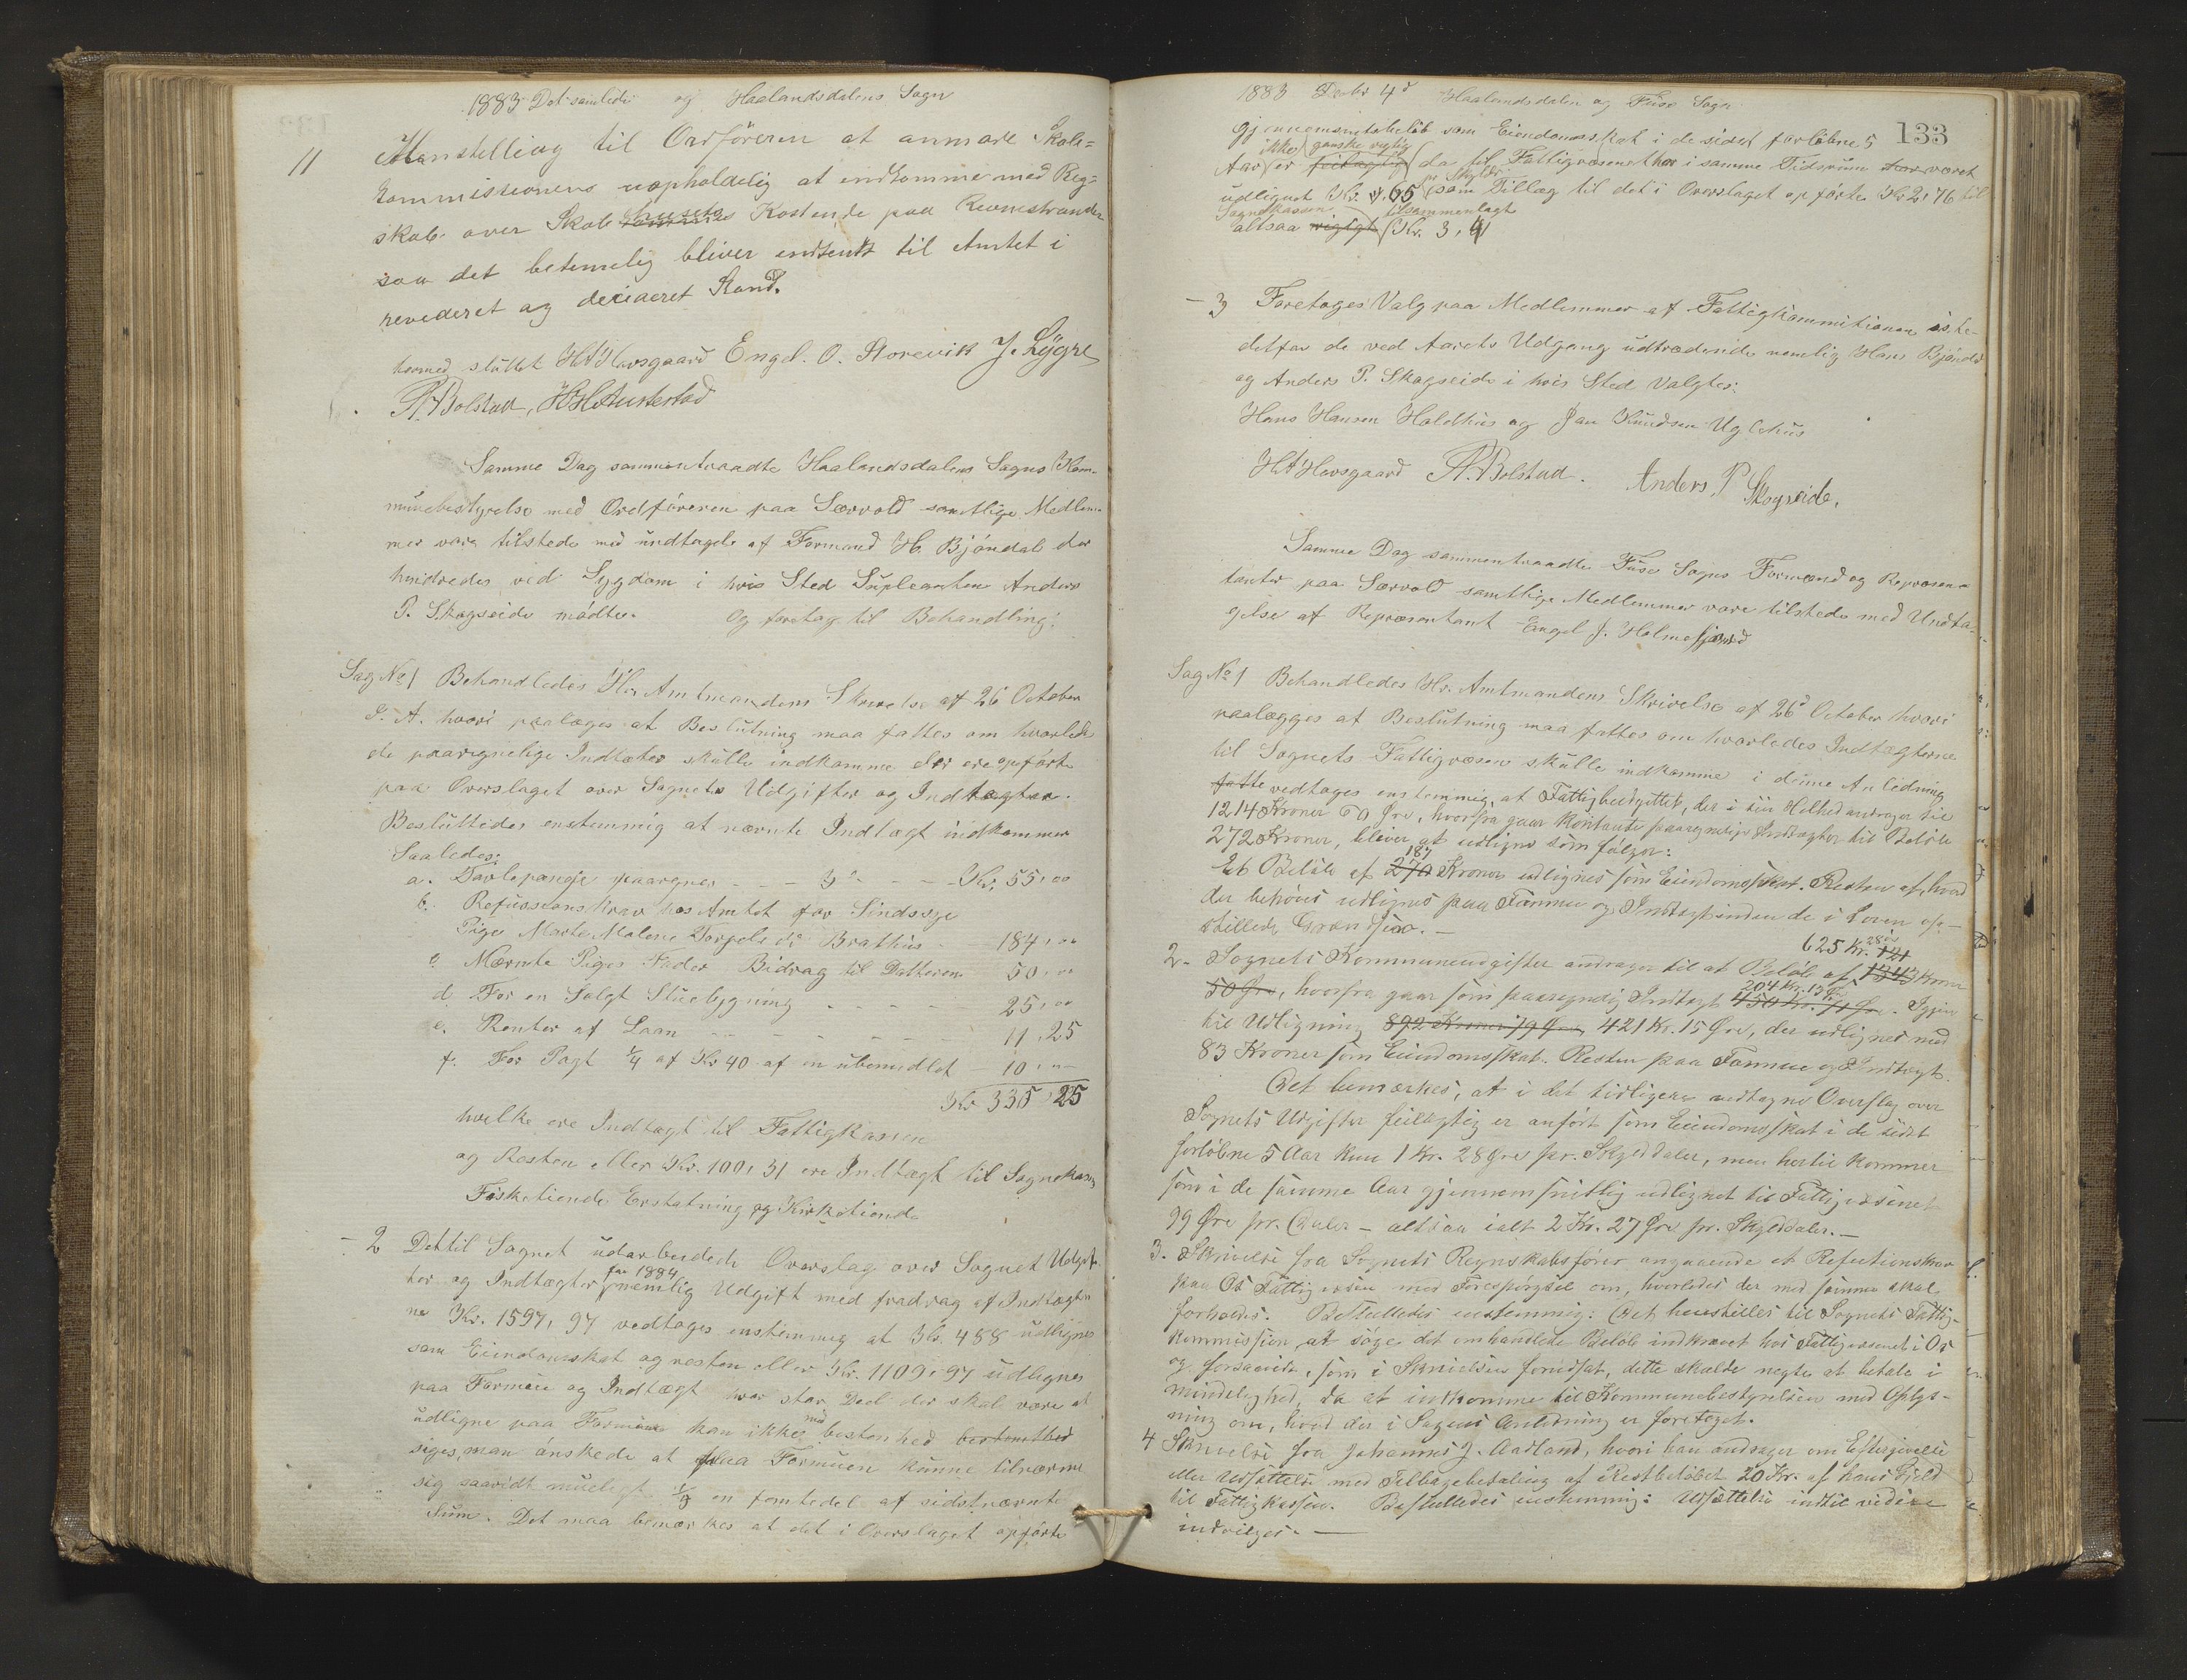 1883 Det samlede og Haalandsdalens Sogn
11 Henstilling til Ordföreren at anmode Skole=
kommissionens uopholdelig at indkomme med Reg=
skab over Skole husets Kostende paa Revnestrand
saa det betimelig bliver indsendt til Amtet i
revederet og decideret Stand.
hermed sluttet HAHavsgaard Engel. O. Storevik J. Lygre
A. Bolstad, HHAustestad
Samme Dag sammentraadte Haalandsdalens Sogns Kom-
munebestyrelse med Ordföreren paa Særvold samtlige Medlem-
mer vare tilstede med undtagelse af Formand H. Bjöndal der
hindredes ved Sygdom i hvis Sted Supleanten Anders
P. Skogseide mödte. Og foretog til Behandling:
Sag No 1 Behandledes Hr. Amtmandens Skrivelse af 26 October
d. A. hvori paalæges at Beslutning maa fattes om hvorledes
de paaregnelige Indtæter skulle indkomme der ere opförte
paa Overslaget over Sognets Udgifter og Indtægter.
Besluttedes enstemmig at nævnte Indtægt indkommer
Saaledes:
a. Tavlepenge paaregnes - - - 3d - - - Kr. 55,00
b. Refusionskrav hos Amtet for Sindssyge
Pige Marte Malene Torgelsdr Brathus - 184,00
c. Nævnte Piges Fader Bidrag til Datteren 50,00
d. For en Solgt Stuebygning - - - - 25,00
e. Renter af Laan - - - - - - 11,25
f. For Pagt 1/4 af Kr 40 af en ubemidlet - 10,00
Kr 335,25
hvilke ere Indtægt til Fattigkassen
og Resten eller Kr. 100,31 ere Indtægt til Sognekassen
Fiskatiende Erstatning og Kirketiende
- 2 Det til Sognet udarbeidede Overslag over Sognet Udgif-
ter og Indtægter for 1884 nemlig Udgift med fradrag af Indtægte
ne Kr. 1597,97 vedtoges enstemmig at Kr. 488 udlignes
som Eiendomsskat og resten eller Kr. 1109,97 udlignes
paa Formue og Indtægt hvor stor Deel der skal være at
udligne paa Formue kan ikke med bestemhed bestemthed
siges, man önskede at paa Formuen kunne tilnærme
sig saavidt mueligt 1/5 en femtedel af sidstnævnte
Sum. Det maa bemærkes at det i Overslaget opförte
1883 Decbr 4d Haalandsdalen og Fuse Sogn
133
gjennemsnitsbelöb som Eiendomsskat i de sidst forlöbne 5
Aar er ikke ganske rigtig feilagtig da til Fattigvæsenet har i samme Tidsrum har været
udlignet Kr. 0,65 pr Skylddr som Tillæg til det i Overslaget opförte Kr 2,76 til
Sognekassen altsaa rigtigt tilsammenlagt Kr. 3,41
- 3 Foretoges Valg paa Medlemmer af Fattigkommitionen iste-
detfor de ved Aarets Udgang udtrædende nemlig Hans Bjöndal
og Anders P. Skogseide i hvis Sted Valgtes:
Hans Hansen Holdhus og Jan Knudsen Uglehus
HAHavsgaard A. Bolstad. Anders P Skogseide.
Samme Dag sammentraadte Fuse Sogns Formænd og Repræsen-
tanter paa Særvold samtlige Medlemmer vare tilstede med Undta-
gelse af Repræsentant Engel J. Holmefjord
Sag No 1 Behandledes Hr. Amtmandens Skrivelse af 26d October hvori
paalægges at Beslutning maa fattes om hvorledes Indtægterne
til Sognets Fattigvæsen skulle indkomme i denne Anledning
fatte vedtoges enstemmig, at Fattigbudgettet, der i sin Helhed andrager til
1214 Kroner 60 Øre, hvorfra gaar Kontante paaregnelige Indtægter til Beløb
272 Kroner, bliver at udligne som følger:
Et Beløb af 270 187 Kroner udlignes som Eiendomsskat. Resten af, hvad
der behøves udlignes paa Formue og Indtægt inden de i Loven op-
stillede Grændser. -
2. Sognets Kommuneudgifter andrager til et Beløb af 625 Kr. 28 Øre 1343 Kroner
50 Øre, hvorfra gaar som paaregnelig Indtægt 204 Kr. 13 Øre 450 Kr. 71 Øre. Igjen
til Udligning 892 Kroner 79 Øre 421 Kr. 15 Øre, der udlignes med
83 Kroner som Eiendomsskat. Resten paa Formue og Indtægt.
Det bemærkes, at i det tidligere vedtagne Overslag over
Sognets Udgifter feilagtig er anført som Eiendomsskat i de sidst
forløbne 5 Aar kun 1 Kr. 28 Øre pr. Skylddaler, men hertil kommer
som i de samme Aar gjennemsnitlig udlignet til Fattigvæsenet
99 Øre pr. Daler - altsaa ialt 2 Kr. 27 Øre pr. Skylddaler. -
3. Skrivelse fra Sognets Regnskabsfører angaaende et Refusionskrav
paa Os Fattigvæsen med Forespørgsel om, hvorledes der med samme skal
forholdes. Besluttedes enstemmig: Det henstilles til Sognets Fattig-
kommission, at søge det omhandlede Beløb indkrævet hos Fattigvæsenet i Os
og forsaavidt, som i Skrivelsen forudsat, dette skulde negte at betale i
mindelighed, da at indkomme til Kommunebestyrelsen med Oplys-
ning om, hvad der i Sagens Anledning er foretaget.
4 Skrivelse fra Johannes J. Aadland, hvori han andrager om Eftergivelse
eller Udsættelse med Tilbagebetaling af Restbeløbet 20 Kr. af hans Gjeld
til Fattigkassen. Besluttedes enstemmig: Udsættelse indtil videre
indvilges. -